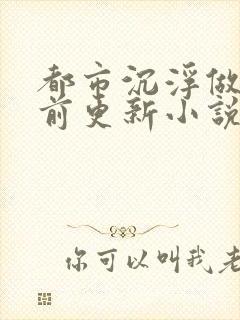 都市沉浮做
前更新小說
你可以叫我老